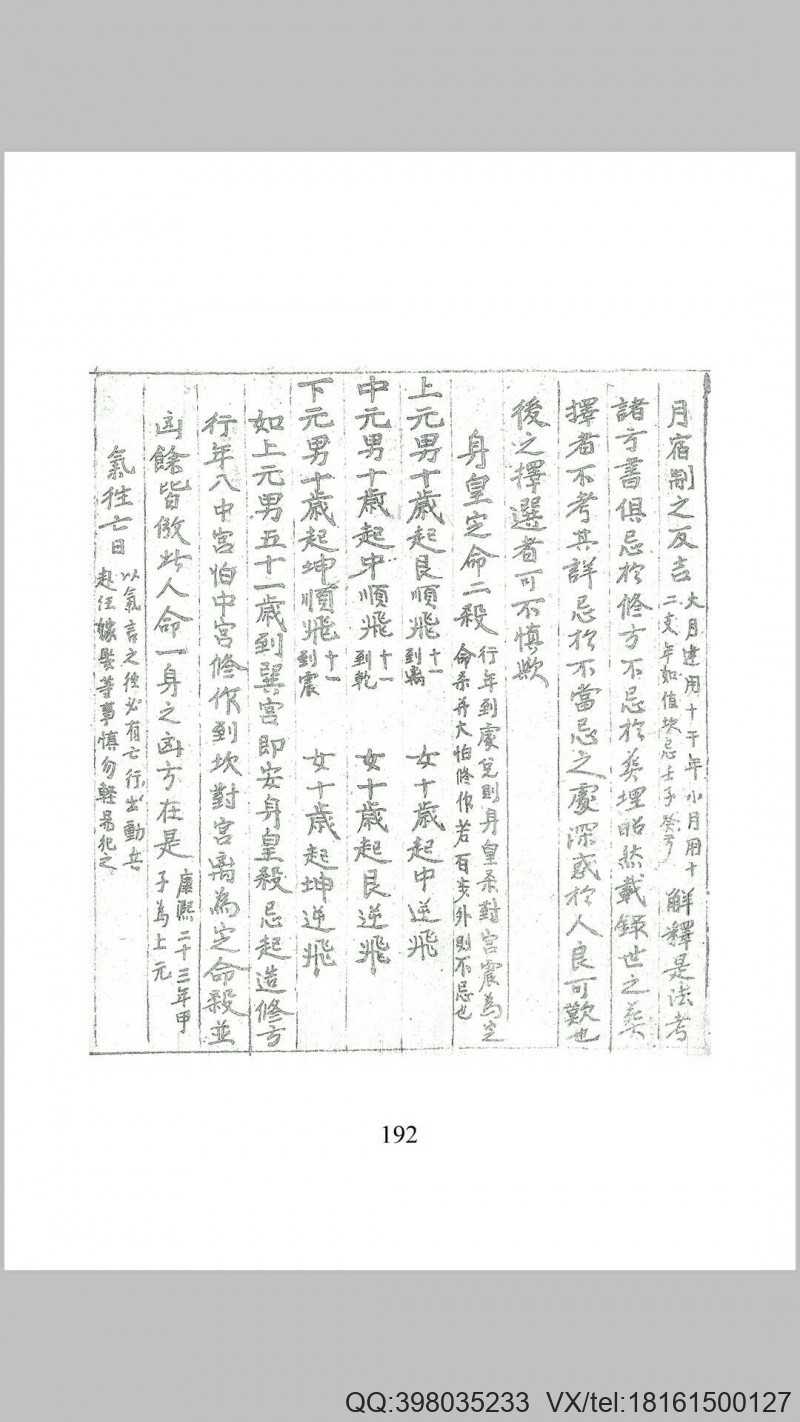 月宿制之反吉 大月建用十干年小月用十二支年如值坎忌壬子癸方 解釋是法考
諸方書俱忌於修方不忌於葬埋昭然載錄世之葬
擇者不考其詳忌於不當忌之處深惑於人良可歎也
後之擇選者可不慎歟
身皇定命二殺 行年到處兌則身皇杀對宮震為定命杀并大怕修作若百步外則不忌也
上元男十歲起艮順飛 十一到离 女十歲起中逆飛
中元男十歲起中順飛 十一到乾 女十歲起艮逆飛
下元男十歲起坤順飛 十一到震 女十歲起坤逆飛
如上元男五十一歲到巽宮即安身皇殺忌起造修方
行年八中宮怕中宮修作到坎對宮离為定命殺並
凶餘皆倣此人命一身之凶方在是 康熙二十三年甲子為上元
氣往亡日 以氣言之往必有亡行出動兵赴任嫁娶等事慎勿輕易犯之
192
QQ:398035233 VX/tel:18161500127